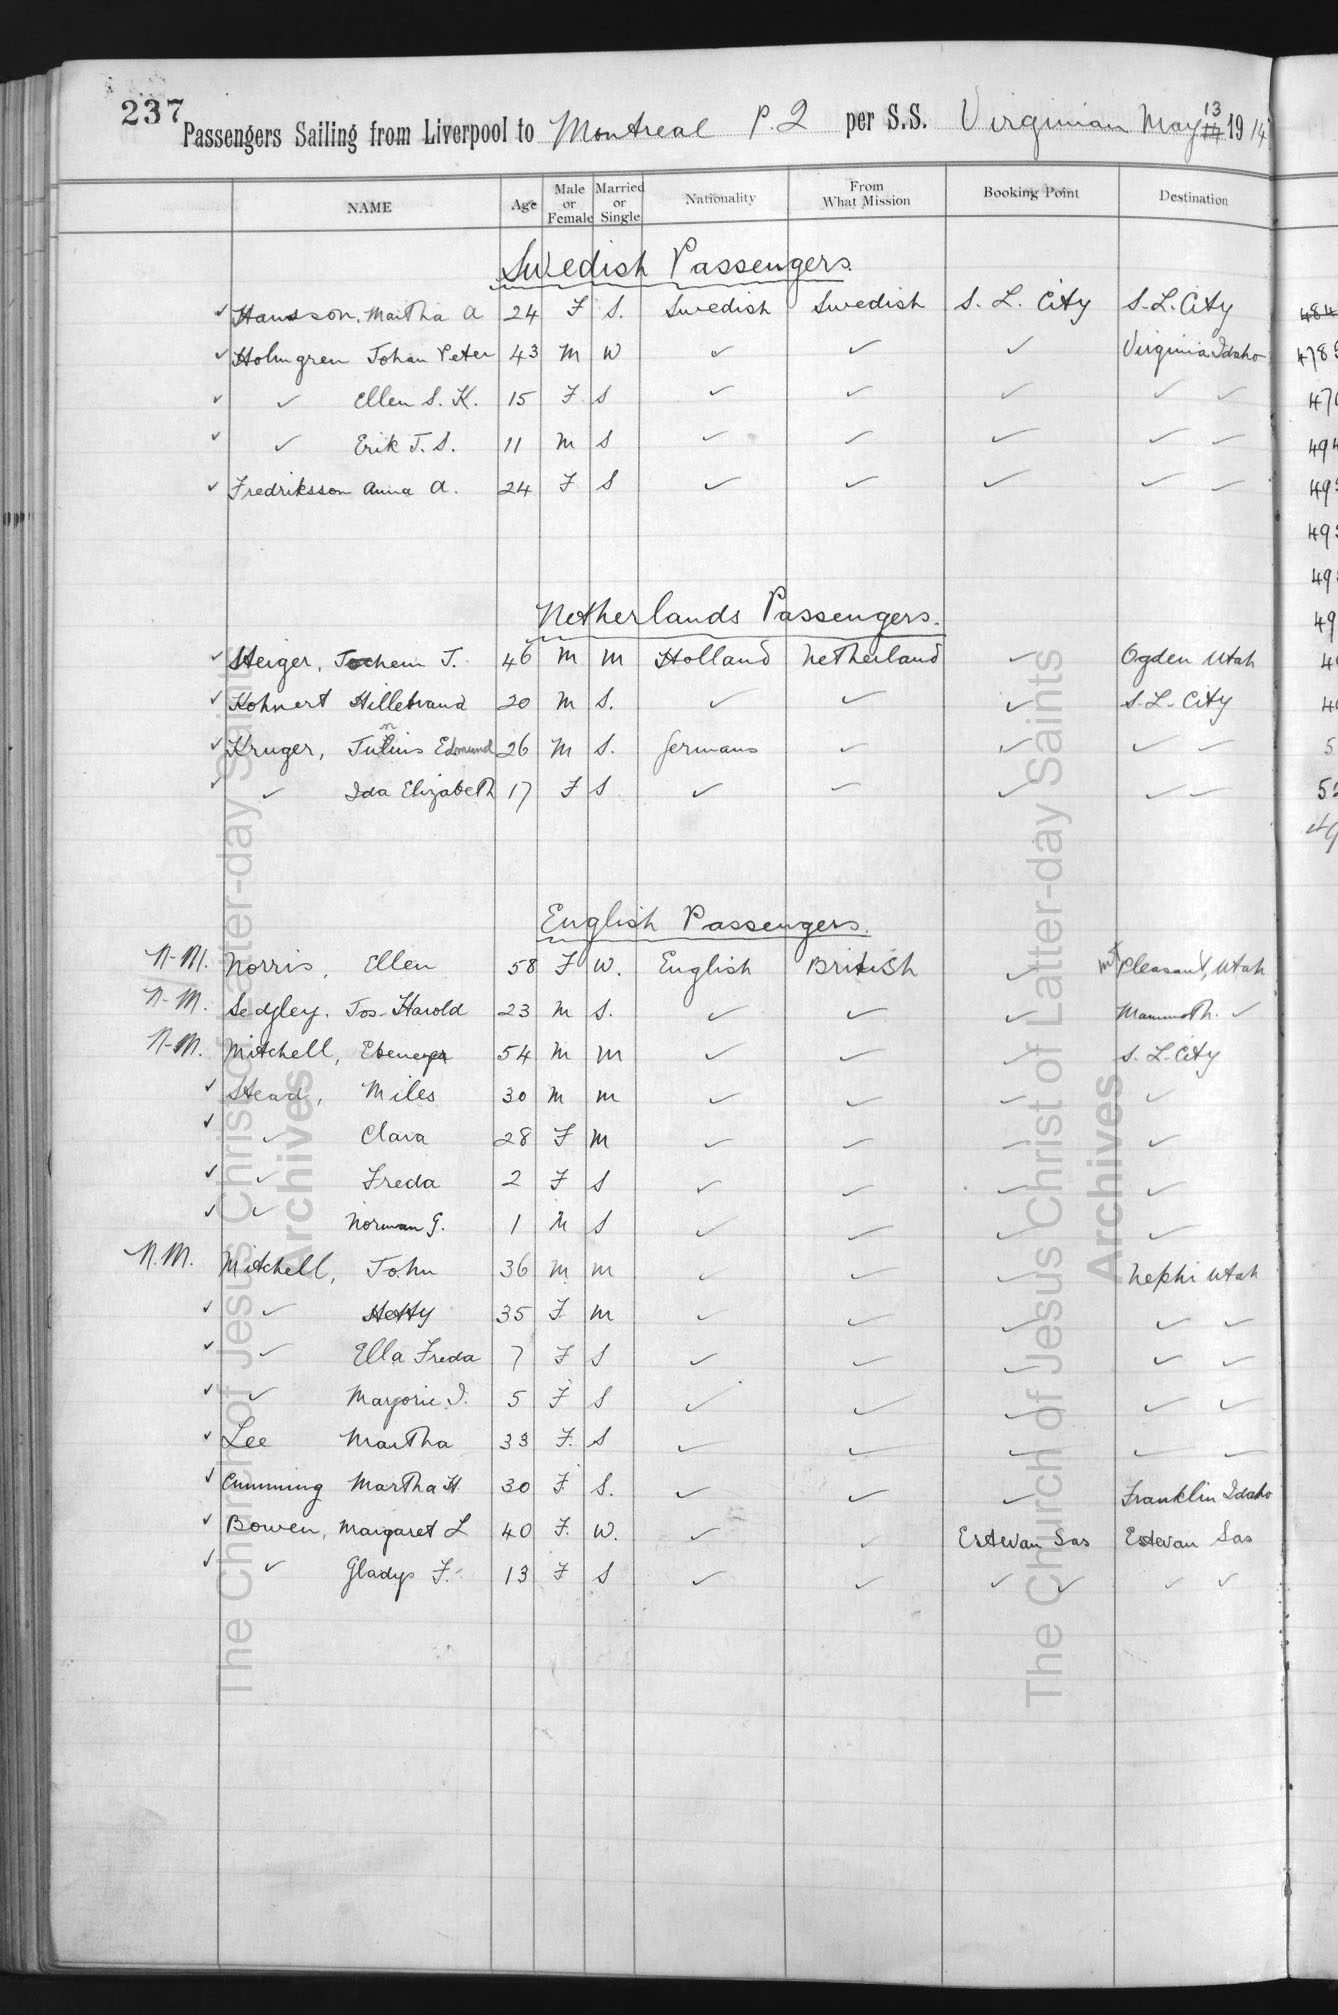 237
Passengers Sailing from Liverpool to Montreal P. 2 per S.S. Virginian May 13 14 1914
NAME Age Male or Female Married or Single Nationality From What Mission Booking Point Destination
Swedish Passengers.
✓ Hansson, Martha A 24 F S. Swedish Swedish S. L. City S. L. City
✓ Holmgren Johan Peter 43 M W ✓ ✓ ✓ Virginia Idaho
✓ ✓ Ellen S. K. 15 F S ✓ ✓ ✓ ✓ ✓
✓ ✓ Erik J. S. 11 M S ✓ ✓ ✓ ✓ ✓
✓ Fredriksson Anna A. 24 F S ✓ ✓ ✓ ✓ ✓
Netherlands Passengers.
✓ Steiger, Jochem J. 46 M M Holland Netherland ✓ Ogden Utah
✓ Kohnert Hillebrand 20 M S. ✓ ✓ ✓ S. L. City
✓ Kruger, Julius Edmund 26 M S. Germans ✓ ✓ ✓ ✓
✓ ✓ Ida Elizabeth 17 F S ✓ ✓ ✓ ✓ ✓
English Passengers.
N-M. Norris, Ellen 58 F W. English British ✓ Mt Pleasant, Utah
N-M. Sedgley, Jos. Harold 23 M S. ✓ ✓ ✓ Mammoth. ✓
N-M. Mitchell, Ebenezer 54 M M ✓ ✓ ✓ S. L. City
✓ Stead, Miles 30 M M ✓ ✓ ✓ ✓
✓ ✓ Clara 28 F M ✓ ✓ ✓ ✓
✓ ✓ Freda 2 F S ✓ ✓ ✓ ✓
✓ ✓ Norman G. 1 M S ✓ ✓ ✓ ✓
N.M. Mitchell, John 36 M M ✓ ✓ ✓ Nephi Utah
✓ ✓ Hetty 35 F M ✓ ✓ ✓ ✓ ✓
✓ ✓ Ella Freda 7 F S ✓ ✓ ✓ ✓ ✓
✓ ✓ Marjorie I. 5 F S ✓ ✓ ✓ ✓ ✓
✓ Lee Martha 33 F. S ✓ ✓ ✓ ✓ ✓
✓ Cumming Martha H 30 F S. ✓ ✓ ✓ Franklin Idaho
✓ Bowen, Margaret L 40 F. W. ✓ ✓ Estevan Sas Estevan Sas
✓ ✓ Gladys F. 13 F S ✓ ✓ ✓ ✓ ✓ ✓
The Church of Jesus Christ of Latter-day Saints
Archives
The Church of Jesus Christ of Latter-day Saints
Archives